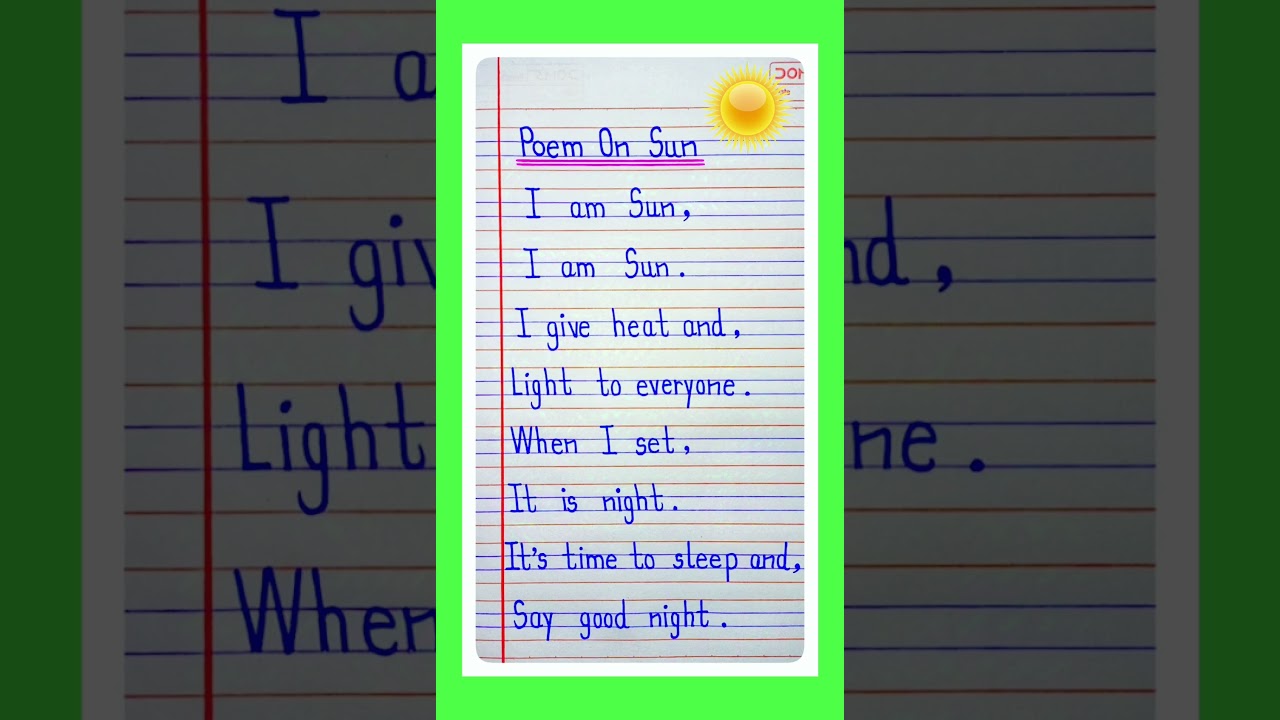 Poem On Sun
I am Sun,
I am Sun.
I give heat and,
Light to everyone.
When I set,
It is night.
It's time to sleep and,
Say good night.